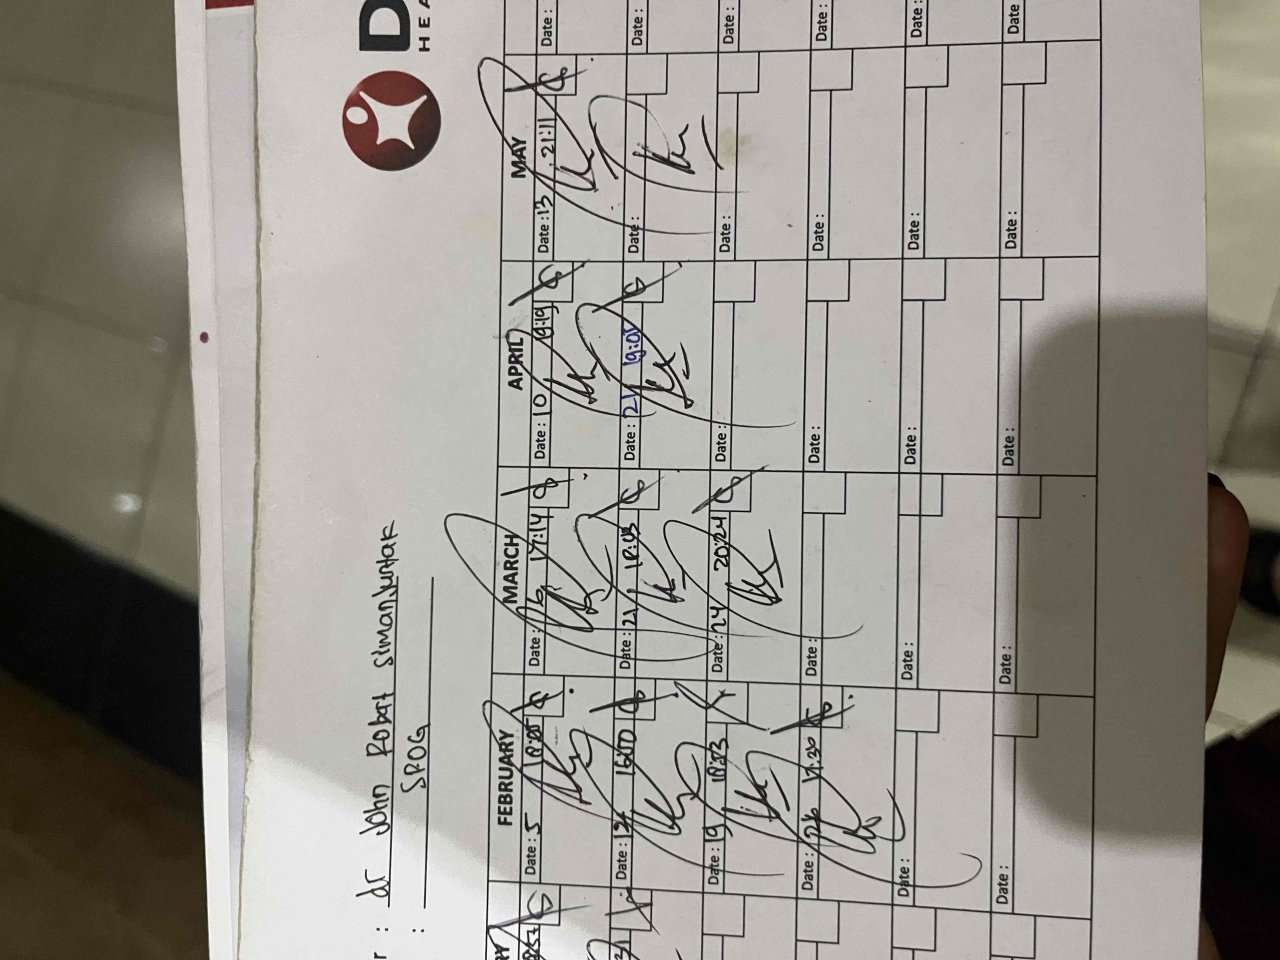 D
HEA
r : dr John Robert Simanjuntak
: SPOG
FEBRUARY MARCH APRIL MAY
Date : 5 Date : 16 17:14 Date : 10 19:19 Date : 13 21:11 Date :
Date : 12 16:00 Date : 21 18:03 Date : 21 19:01 Date : Date :
Date : 19 18:33 Date : 24 20:24 Date : Date : Date :
Date : 26 17:30 Date : Date : Date : Date :
Date : Date : Date : Date : Date :
Date : Date : Date : Date : Date :